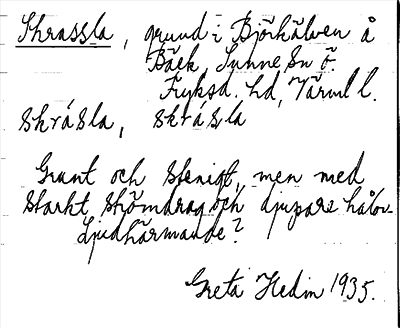 Skrassla, grund i Björkälven å
Bäck, Sunne sn ö.
Fryksd. hd, Värml l.
skrásla, skrásla
Grunt och stenigt, men med
starkt strömdrag och djupare hålor.
Ljudhärmande?
Greta Hedin 1935.